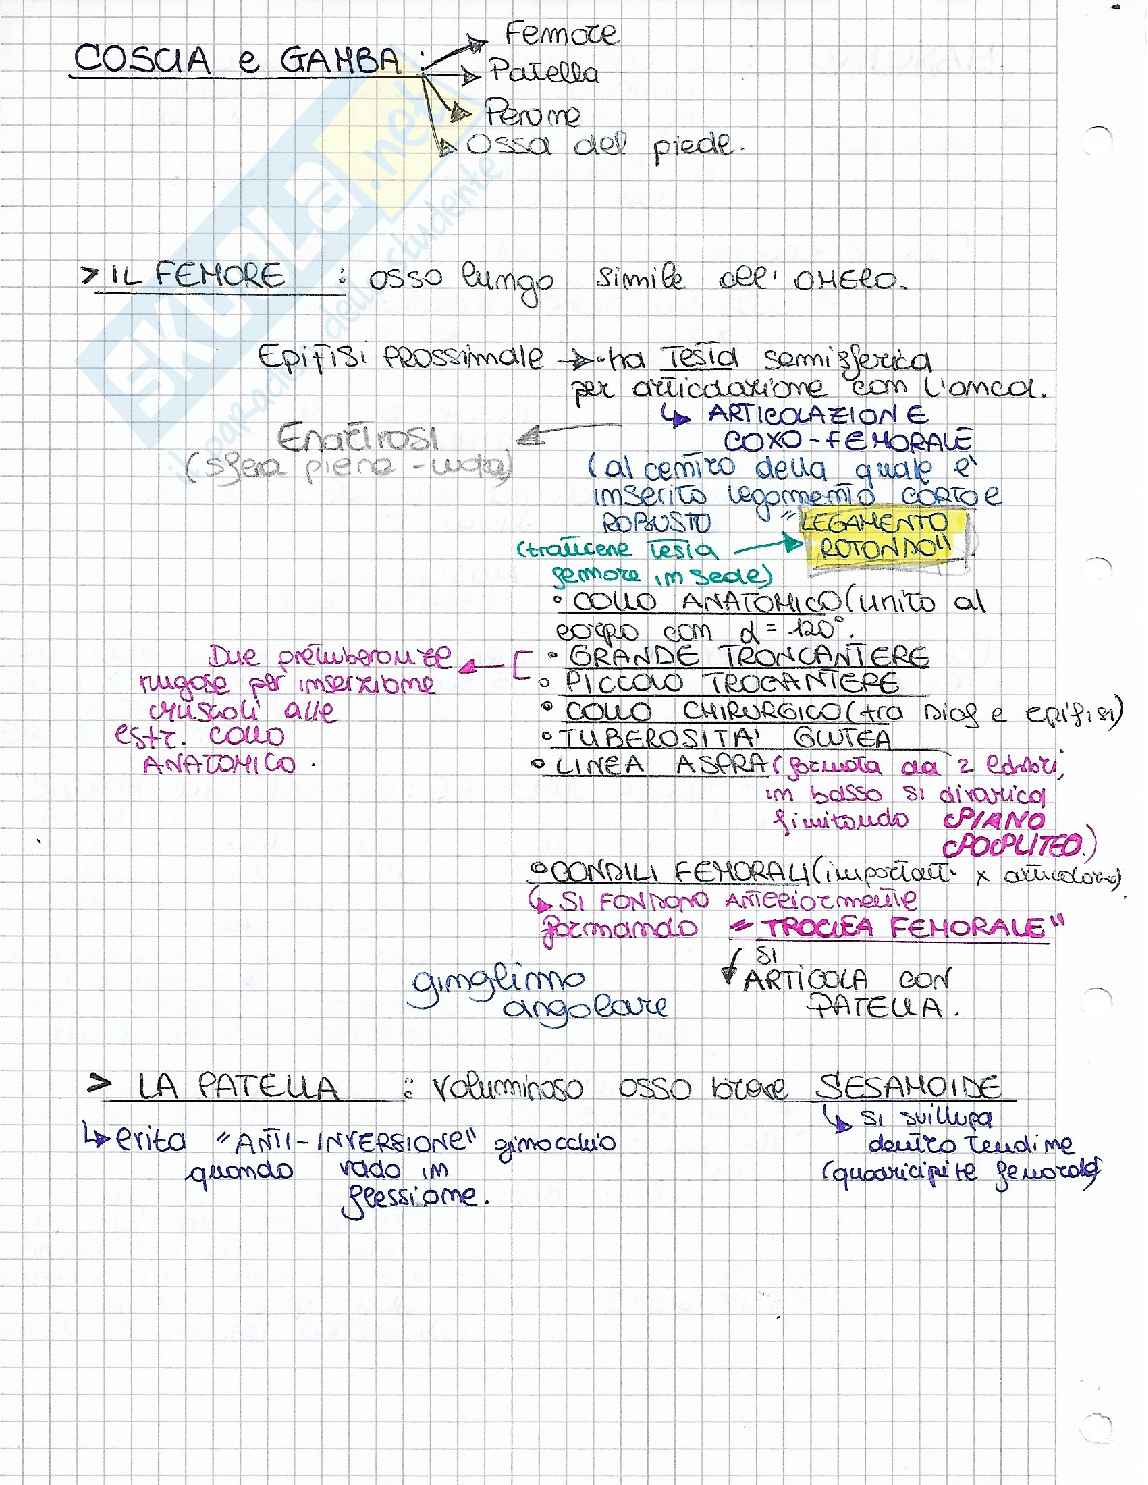 COSCIA e GAMBA :
Femore
Patella
Perone
Ossa del piede.
> IL FEMORE : osso lungo simile all' OMERO.
Epifisi PROSSIMALE → ha TESTA semisferica
per articolazione con l'anca.
↳ ARTICOLAZIONE
COXO-FEMORALE
Enartrosi
(sfera piena - vuota)
(al centro della quale è
inserito legamento CORTO e
ROBUSTO "LEGAMENTO
ROTONDO"
(trattiene testa
femore in sede)
• COLLO ANATOMICO (unito al
corpo con α = 120°.
• GRANDE TRONCANTERE
• PICCOLO TROCANTERE
Due protuberanze
rugose per inserzione
muscoli alle
estr. collo
ANATOMICO.
• COLLO CHIRURGICO (tra diaf e epifisi)
• TUBEROSITA' GLUTEA
• LINEA ASPRA (formata da 2 labbri,
in basso si divarica
limitando PIANO
POPLITEO.)
• CONDILI FEMORALI (important. x articolare)
↳ SI FONDONO ANTERIORMENTE
formando "TROCLEA FEMORALE"
↓ SI
ARTICOLA CON
PATELLA.
ginglimo
angolare
> LA PATELLA : voluminoso osso breve SESAMOIDE
↳ si sviluppa
dentro tendine
(quadricipite femorale)
↳ evita "ANTI-INVERSIONE" ginocchio
quando vado in
flessione.
SKUOLA.net
il paradiso dello studente